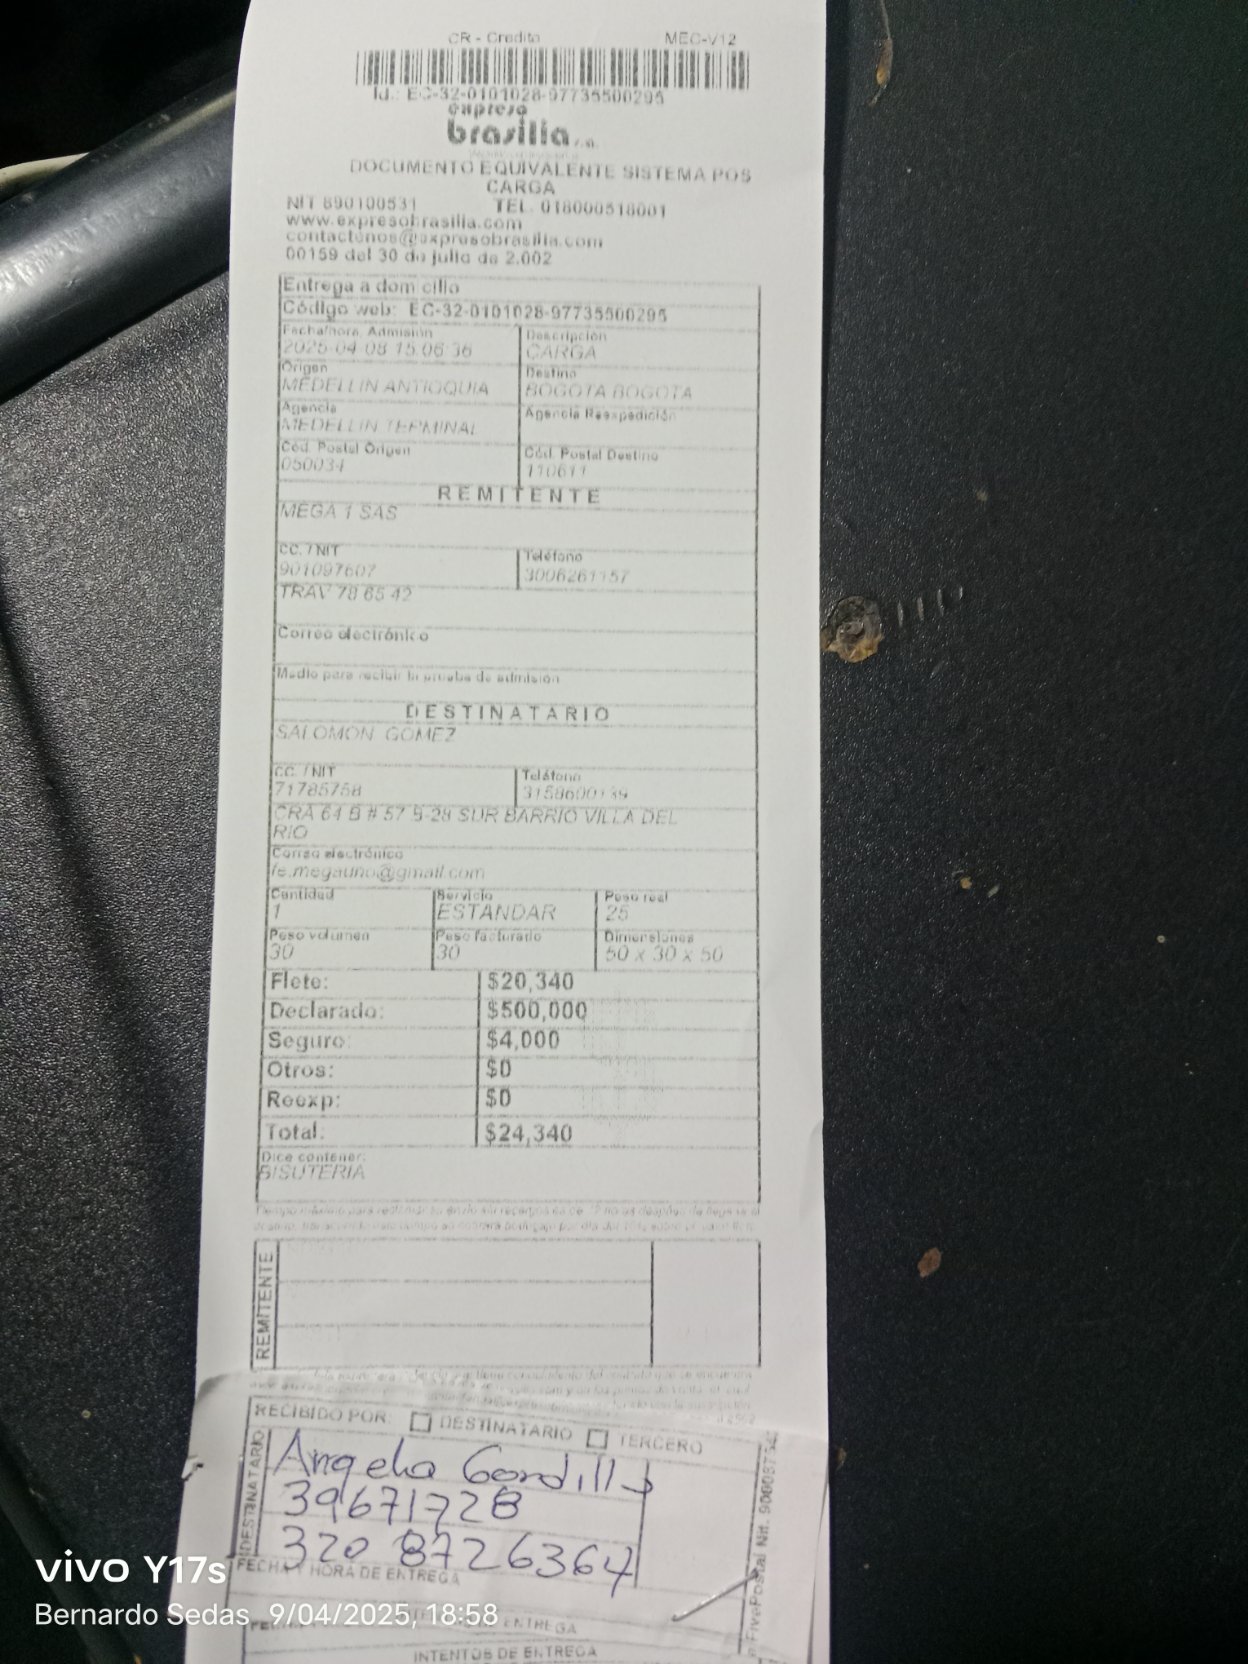 CR - Credito MEC-V12
Id.: EC-32-0101028-97735500295
expreso
brasilia s.a.
DOCUMENTO EQUIVALENTE SISTEMA POS
CARGA
NIT 890100531 TEL. 018000518001
www.expresobrasilia.com
contactenos@expresobrasilia.com
00159 del 30 de julio de 2.002
Entrega a domicilio
Código web: EC-32-0101028-97735500295
Fecha/hora. Admisión Descripción
2025-04-08 15:06:36 CARGA
Origen Destino
MEDELLIN ANTIOQUIA BOGOTA BOGOTA
Agencia Agencia Reexpedición
MEDELLIN TERMINAL
Cód. Postal Origen Cód. Postal Destino
050034 110611
REMITENTE
MEGA 1 SAS
CC. / NIT Teléfono
901097607 3006261157
TRAV 78 65 42
Correo electrónico
Medio para recibir la prueba de admisión
DESTINATARIO
SALOMON GOMEZ
CC. / NIT Teléfono
71785758 3158600139
CRA 64 B # 57 B-28 SUR BARRIO VILLA DEL
RIO
Correo electrónico
fe.megauno@gmail.com
Cantidad Servicio Peso real
1 ESTANDAR 25
Peso volumen Peso facturado Dimensiones
30 30 50 x 30 x 50
Flete: $20,340
Declarado: $500,000
Seguro: $4,000
Otros: $0
Reexp: $0
Total: $24,340
Dice contener:
BISUTERIA
REMITENTE
RECIBIDO POR: DESTINATARIO TERCERO
DESTINATARIO
Angelia Gordillo
39671728
320 8726364
FECHA Y HORA DE ENTREGA
ENTREGA
INTENTOS DE ENTREGA
FivePostal Nit.
vivo Y17s
Bernardo Sedas 9/04/2025, 18:58